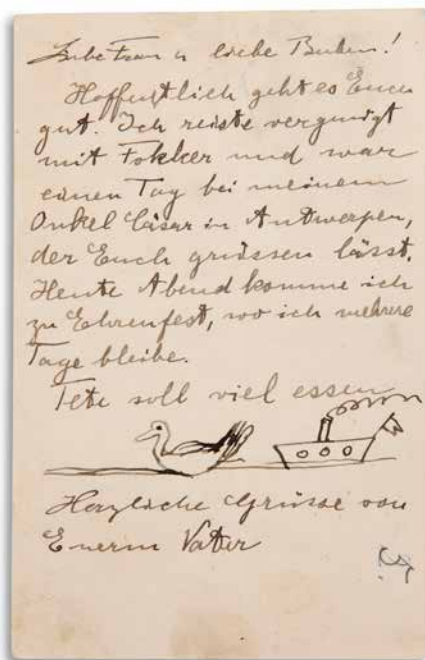 Liebe Frau u liebe Buben!
Hoffentlich geht es Euch
gut. Ich reiste vergnügt
mit Fokker und war
einen Tag bei meinem
Onkel Cäsar in Antwerpen,
der Euch grüssen lässt.
Heute Abend komme ich
zu Ehrenfest, wo ich mehrere
Tage bleibe.
Tete soll viel essen
Herzliche Grüsse von
Euerm Vater